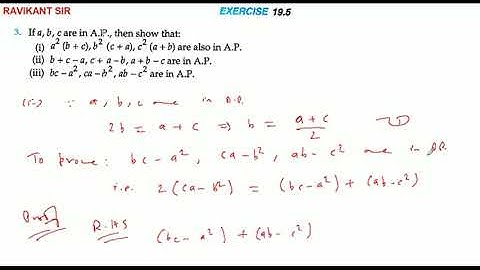 RAVIKANT SIR
EXERCISE 19.5
3. If a, b, c are in A.P., then show that:
(i) a² (b + c), b² (c + a), c² (a + b) are also in A.P.
(ii) b + c – a, c + a – b, a + b – c are in A.P.
(iii) bc – a², ca – b², ab – c² are in A.P.
∵ a, b, c are in A.P.
2b = a + c ⇒ b = a + c / 2 ①
To prove: bc – a², ca – b², ab – c² are in A.P.
i.e. 2 (ca – b²) = (bc – a²) + (ab – c²)
Proof
R.H.S (bc – a²) + (ab – c²)